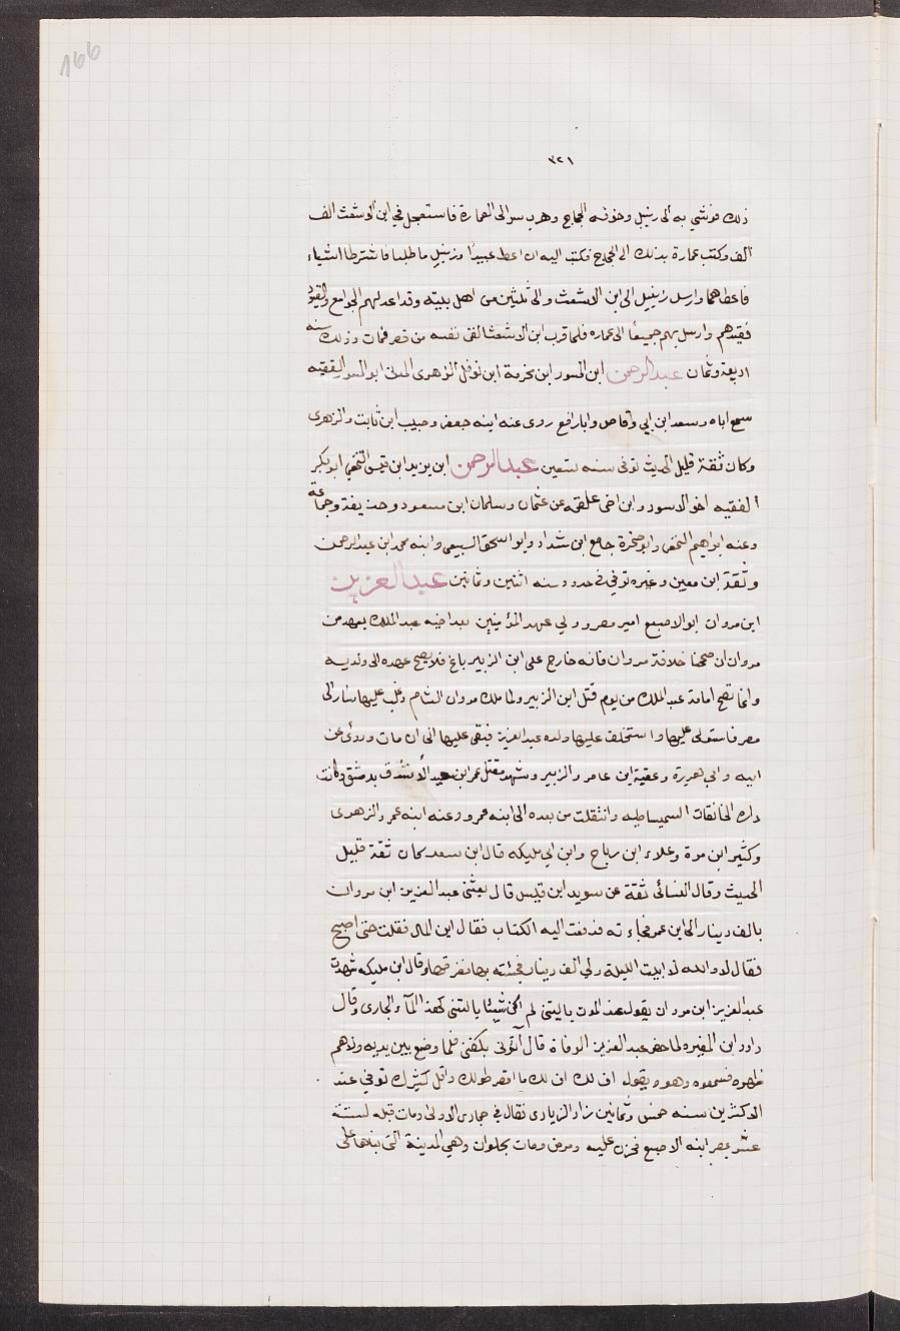 166
٣٢١
ذلك فوشي به الى رتبيل وخوفه الحجاج وهرب سرا الى العمارة فاستعجل في ابن الاشعث الف
الف وكتب عمارة بذلك الى الحجاج فكتب اليه ان اعط عبيدا ورتبيل ما طلبا فاشترطا اشياء
فاعطاهما وارسل رتبيل الى ابن الاشعث والى ثلثين من اهل بيته وقد اعد لهم الجوامع والقيود
فقيدهم وارسل بهم جميعا الى عماره فلما قرب ابن الاشعث القى نفسه من قصر فمات وذلك سنه
اربعة وثمان عبد الرحمن ابن المسور ابن مخرمة ابن نوفل الزهرى المدنى ابو المسور الفقيه
سمع اباه وسعد ابن ابي وقاص وابا رافع روى عنه ابنه جعفر وحبيب ابن ثابت والزهرى
وكان ثقة قليل الحديث توفى سنه تسعين عبد الرحمن ابن يزيد ابن قيس النخعي ابو بكر
الفقيه اخو الاسود وابن اخى علقمه عن عثمان وسلمان ابن مسعود وحذيفة وجماعة
وعنه ابراهيم النخعى وابو صخرة جامع ابن شداد وابو اسحق السبيعى وابنه محمد ابن عبد الرحمن
وثقة ابن معين وغيره توفي في حدود سنه اثنين وثمانين عبد العزيز
ابن مروان ابو الاصبغ امير مصر وولي عهد المؤمنين بعد اخيه عبد الملك بعهد من
مروان ان صححنا خلافة مروان فانه خارج على ابن الزبير باغ فلا يصح عهده الى ولديه
وانما تصح امامة عبد الملك من يوم قتل ابن الزبير ولما ملك مروان الشام وغلب عليها سار الى
مصر فاستولى عليها واستخلف عليها ولده عبد العزيز فبقى عليها الى ان مات وروى عن
ابيه وابي هريرة وعقبة ابن عامر والزبير وشهد مقتل عمر ابن سعيد الاشدق بدمشق وكانت
داره الخانقات السميساطيه وانتقلت من بعده الى ابنه عمر وروعنه ابنه عمر والزهرى
وكثير ابن مرة وعلاء ابن رباح وابن ابي مليكه قال ابن سعد كان ثقة قليل
الحديث وقال النسائى ثقة عن سويد ابن قيس قال بعثنى عبد العزيز ابن مروان
بالف دينار الى ابن عمر فجاءته فدفعت اليه الكتاب فقال ابن المال فقلت حتى اصبح
فقال لا والله لا ابيت الليلة ولي الف دينار فجئته بها ففرقها وقال ابن مليكه شهدت
عبد العزيز ابن مروان يقول عند الموت يا ليتنى لم اكن شيئا يا ليتنى كهذا المآء الجارى وقال
داود ابن المغيره لما حضر عبد العزيز الوفاة قال اتونى بكفنى فلما وضع بين يديه ولاهم
ظهره فسمعوه وهو يقول اف لك اف لك ما اقصر طولك واقل كثيرك توفي عند
الاكثرين سنه خمس وثمانين زاد الزيادى فقال في جمادى الاولى ومات قبله لستة
عشر بمصر ابنه الاصبغ فحزن عليه ومرض ومات بحلوان وهي المدينة التي بناها على